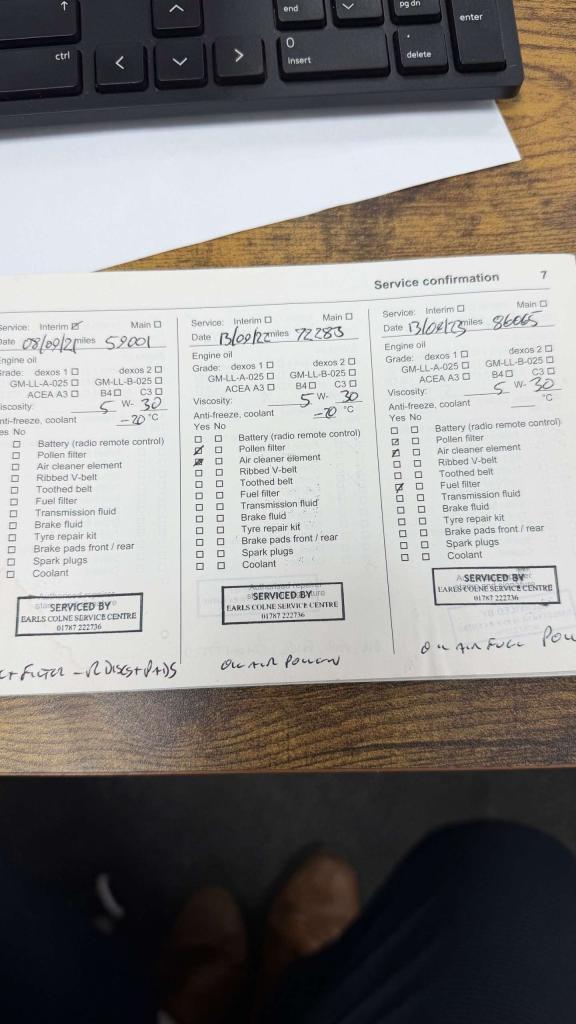 end
pg dn
enter
ctrl
0
insert
.
delete
Service confirmation 7
Service: Interim Main
Date 08/09/21 miles 59001
Engine oil
Grade: dexos 1 dexos 2
GM-LL-A-025 GM-LL-B-025
ACEA A3 B4 C3
Viscosity: 5 W- 30
Anti-freeze, coolant -20 °C
Yes No
Battery (radio remote control)
Pollen filter
Air cleaner element
Ribbed V-belt
Toothed belt
Fuel filter
Transmission fluid
Brake fluid
Tyre repair kit
Brake pads front / rear
Spark plugs
Coolant
SERVICED BY
EARLS COLNE SERVICE CENTRE
01787 222736
+ FILTER - R DISCS + PADS
Service: Interim Main
Date 13/09/22 miles 72283
Engine oil
Grade: dexos 1 dexos 2
GM-LL-A-025 GM-LL-B-025
ACEA A3 B4 C3
Viscosity: 5 W- 30
Anti-freeze, coolant -20 °C
Yes No
Battery (radio remote control)
Pollen filter
Air cleaner element
Ribbed V-belt
Toothed belt
Fuel filter
Transmission fluid
Brake fluid
Tyre repair kit
Brake pads front / rear
Spark plugs
Coolant
SERVICED BY
EARLS COLNE SERVICE CENTRE
01787 222736
OIL AIR POLLEN
Service: Interim Main
Date 13/09/23 miles 86665
Engine oil
Grade: dexos 1 dexos 2
GM-LL-A-025 GM-LL-B-025
ACEA A3 B4 C3
Viscosity: 5 W- 30
Anti-freeze, coolant °C
Yes No
Battery (radio remote control)
Pollen filter
Air cleaner element
Ribbed V-belt
Toothed belt
Fuel filter
Transmission fluid
Brake fluid
Tyre repair kit
Brake pads front / rear
Spark plugs
Coolant
SERVICED BY
EARLS COLNE SERVICE CENTRE
01787 222736
OIL AIR FUEL